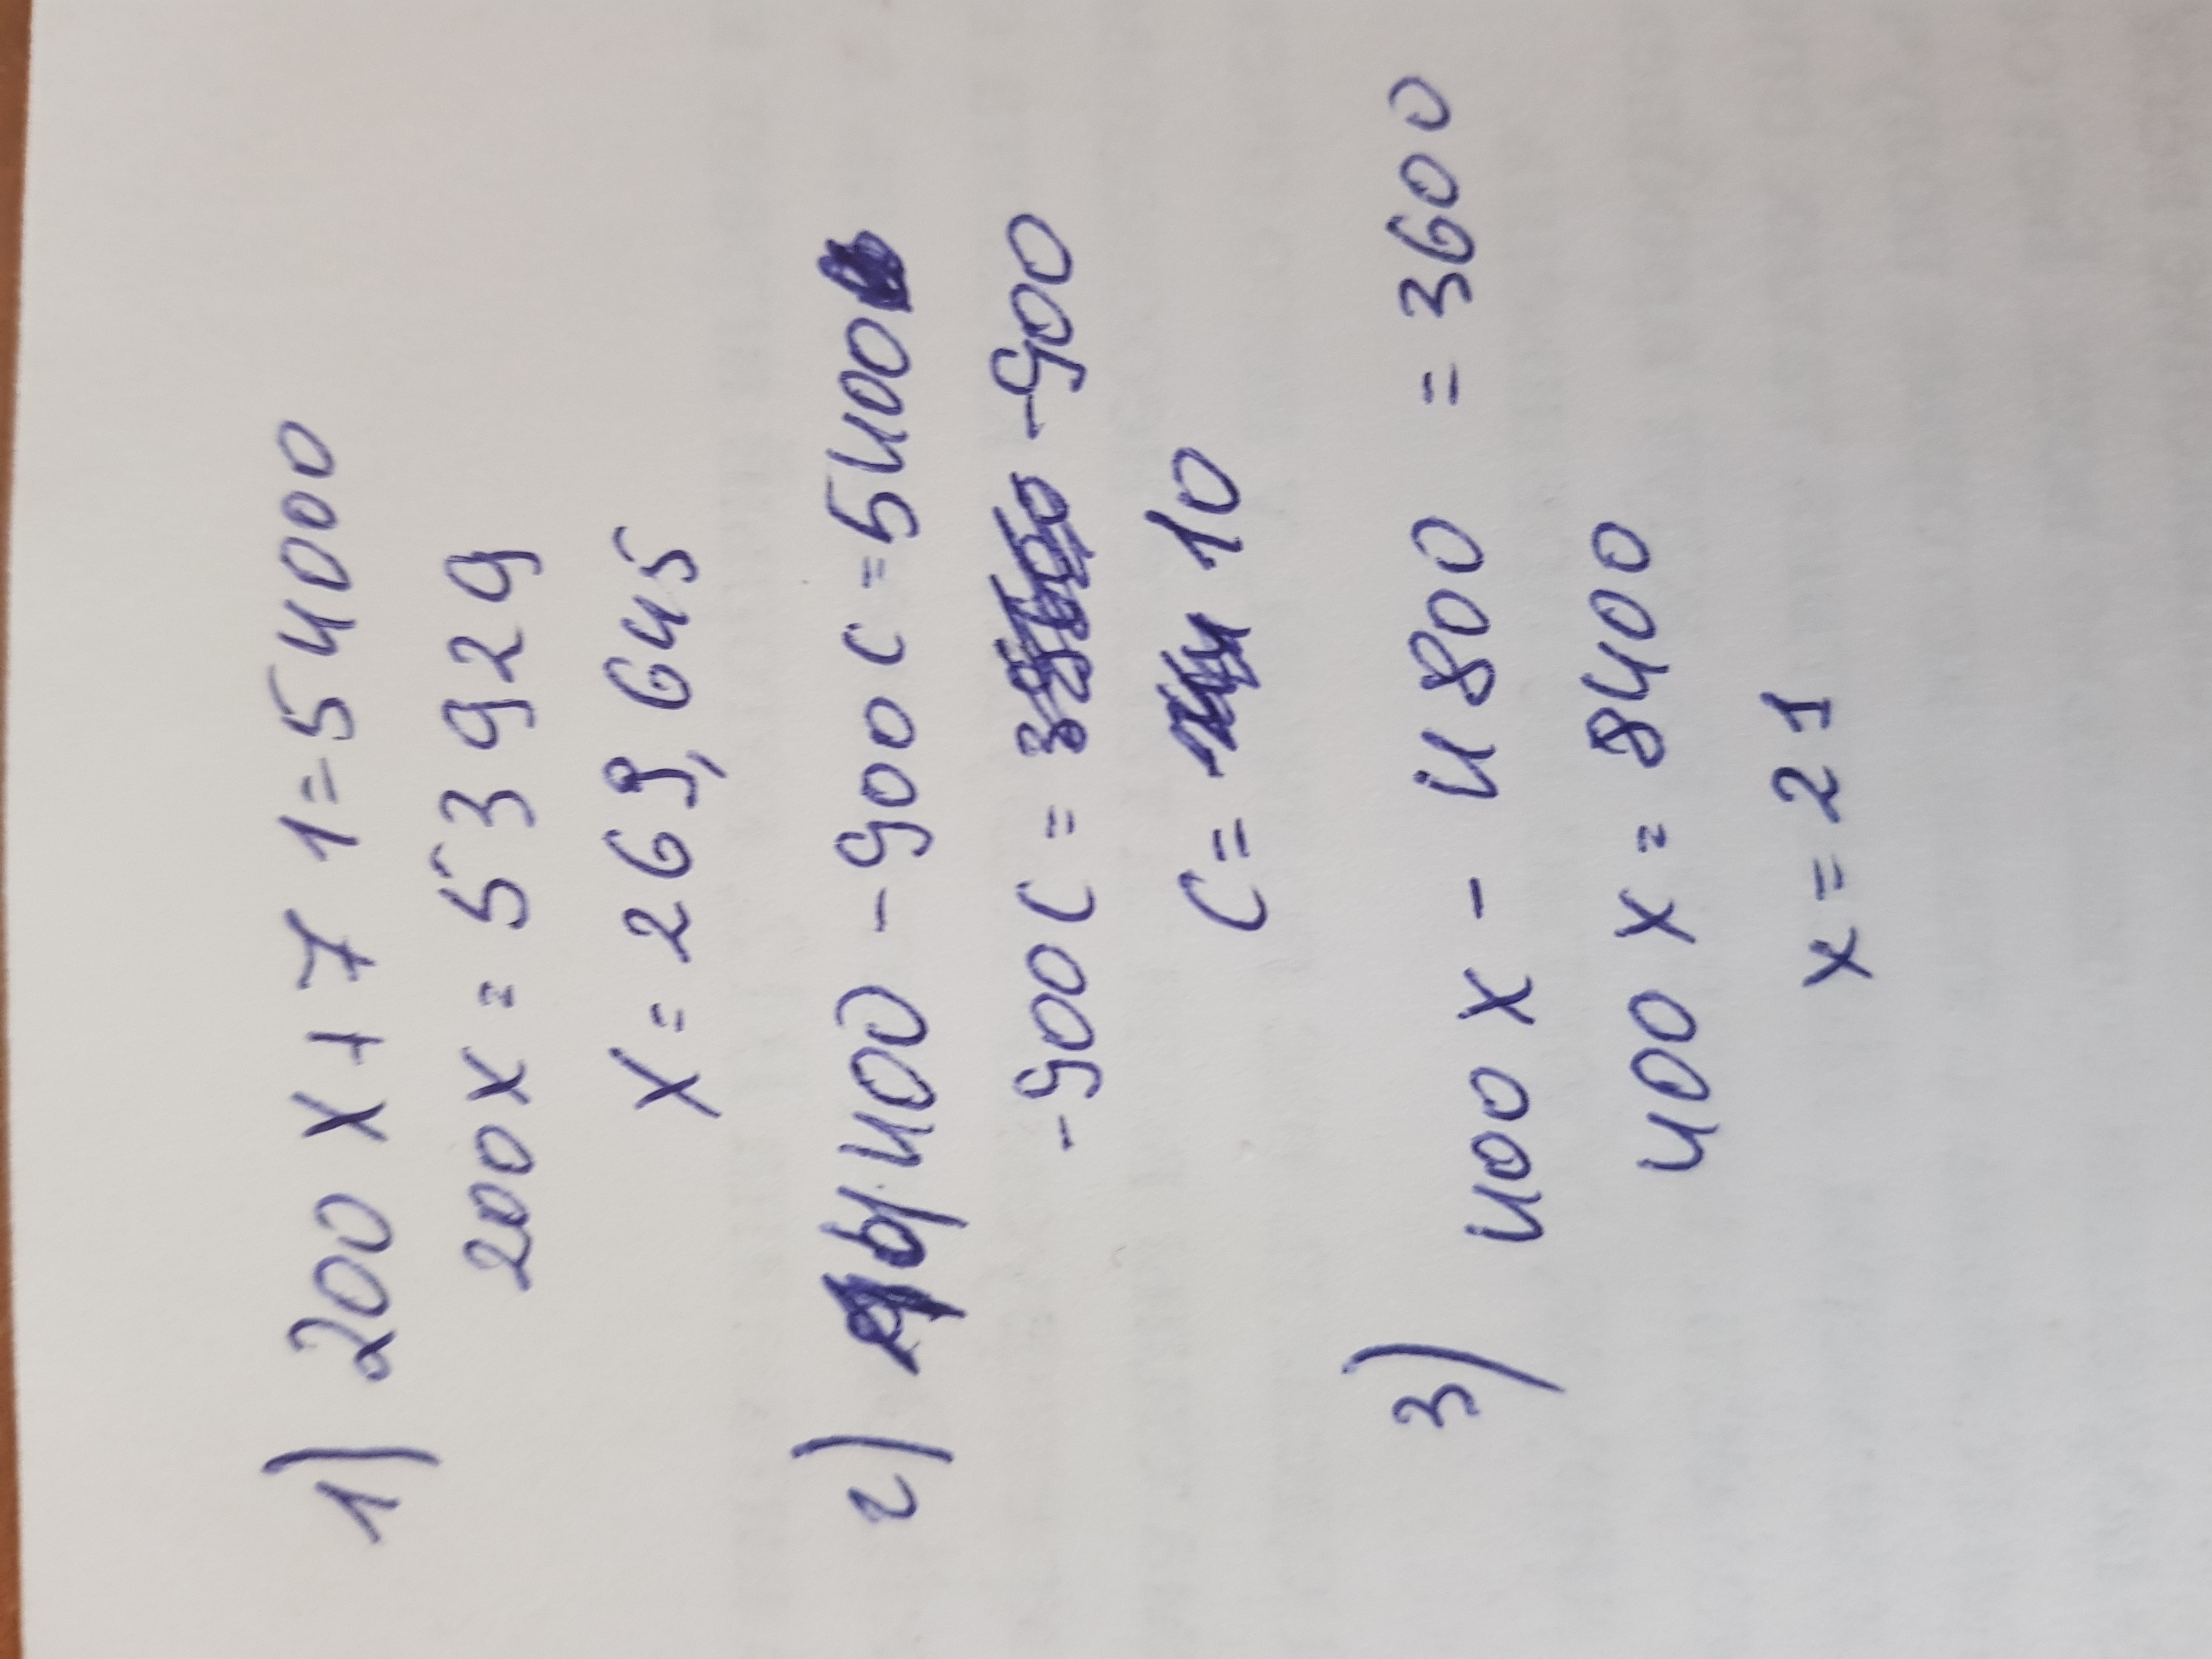 1) 200x+71=54000
200x=53929
x=269,645
2) 6400-900c=5400
-900c= -900
c= 10
3) 400x-4800 =3600
400x=8400
x=21